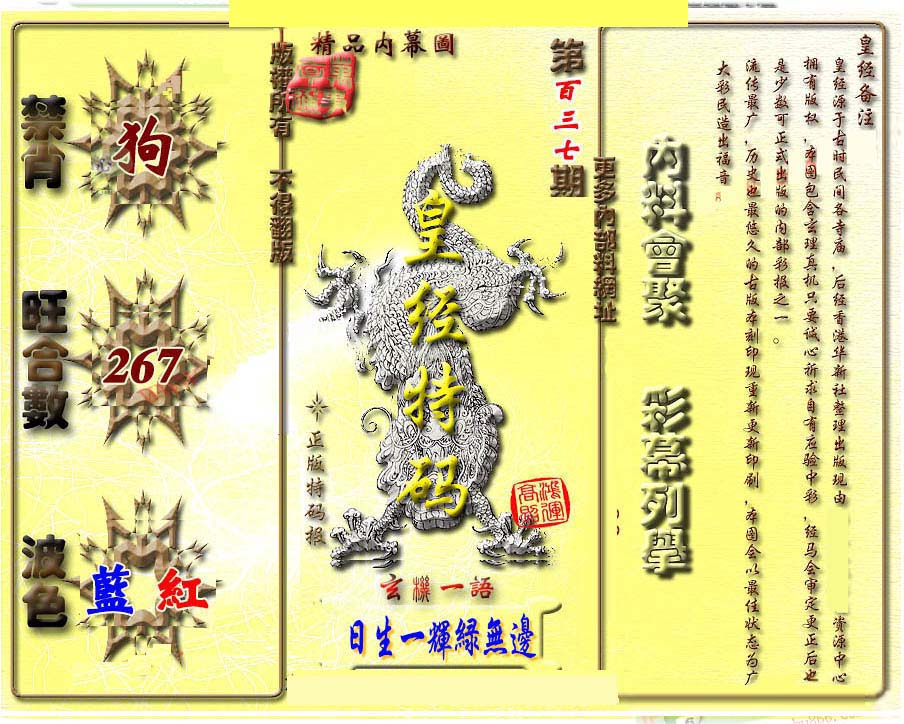 皇经备注
皇经源于古时民间各寺庙,后经香港华新社整理出版现由 资源中心
拥有版权,本图包含玄理真机只要诚心祈求自有应验中彩,经马会审定更正后也
是少数可正式出版的内部彩报之一。
流传最广,历史也最悠久的古版本刻印现重新更新印刷,本图会以最佳状态为广
大彩民造出福音
内料會聚
彩幕列舉
更多內部料網址
第百三七期
精品内幕圖
版權所有 不得翻版
皇经特码
正版特码报
鸿運高照
玄機一語
日生一輝緑無邊
禁肖
狗
旺合數
267
波色
藍 紅